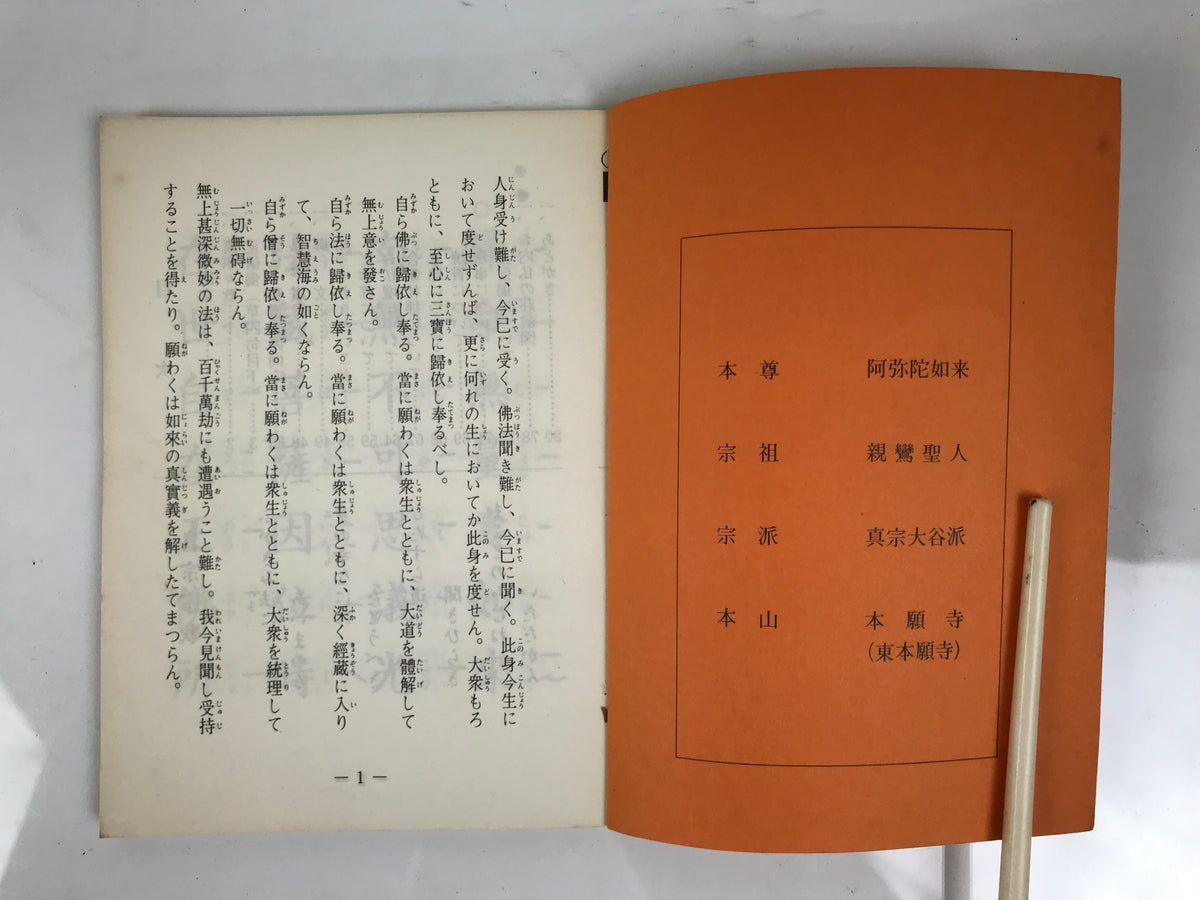 本尊 阿弥陀如来
宗祖 親鸞聖人
宗派 真宗大谷派
本山 本願寺
(東本願寺)
人身受け難し、今已に受く。佛法聞き難し、今已に聞く。此身今生に
おいて度せずんば、更に何れの生においてか此身を度せん。大衆もろ
ともに、至心に三寶に歸依し奉るべし。
自ら佛に歸依し奉る。當に願わくは衆生とともに、大道を體解して
無上意を發さん。
自ら法に歸依し奉る。當に願わくは衆生とともに、深く經蔵に入り
て、智慧海の如くならん。
自ら僧に歸依し奉る。當に願わくは衆生とともに、大衆を統理して
一切無碍ならん。
無上甚深微妙の法は、百千萬劫にも遭遇うこと難し。我今見聞し受持
することを得たり。願わくは如來の真實義を解したてまつらん。
— 1 —